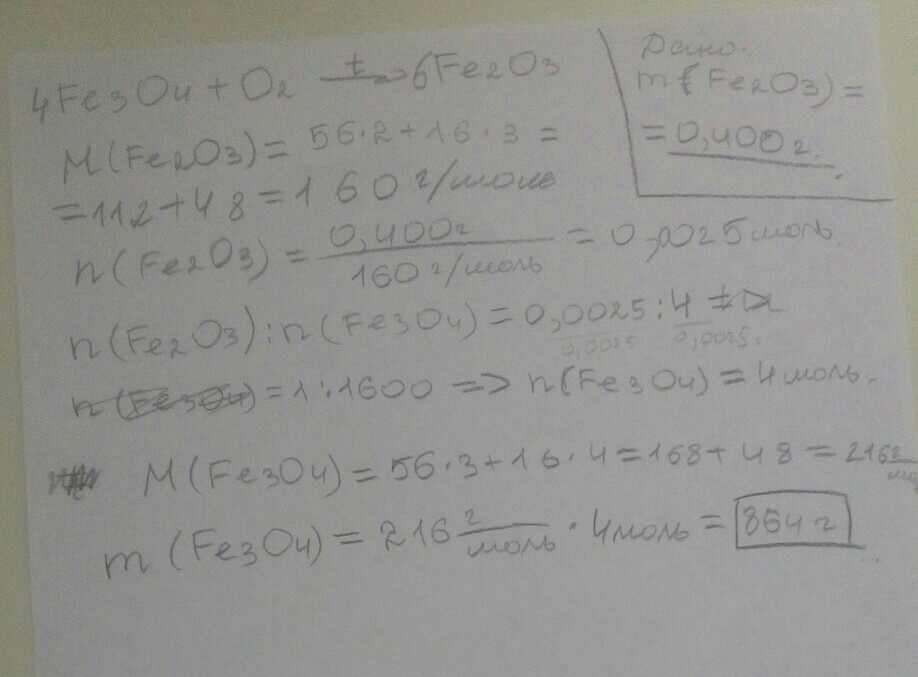 4Fe3O4 + O2 t→ 6Fe2O3
M(Fe2O3) = 56·2+16·3 =
=112+48=160 г/моль
n(Fe2O3) = 0,400г / 160 г/моль = 0,0025 моль.
n(Fe2O3):n(Fe3O4) = 0,0025:4
0,0025 0,0025.
n(Fe3O4) = 1:1600 => n(Fe3O4) = 4 моль.
M(Fe3O4) = 56·3+16·4=168+48=216 г
m(Fe3O4) = 216 г/моль · 4моль = 864 г
Дано:
m(Fe2O3) =
= 0,400 г.